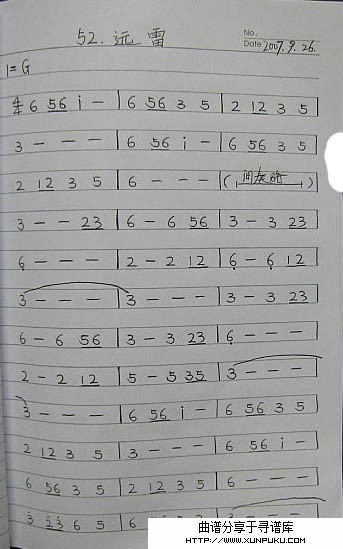 52. 远雷
No.
Date 2007.9.26.
1=G
4/4 6 56 i - | 6 56 3 5 | 2 12 3 5 |
3 - - - | 6 56 i - | 6 56 3 5 |
2 12 3 5 | 6 - - - | (间奏略) |
3 - - 23 | 6 - 6 56 | 3 - 3 23 |
6̣ - - - | 2 - 2 12 | 6̣ - 6̣ 12 |
3 - - - | 3 - - - | 3 - 3 23 |
6 - 6 56 | 3 - 3 23 | 6̣ - - - |
2 - 2 12 | 5 - 5 35 | 3 - - - |
3 - - - | 6 56 i - | 6 56 3 5 |
2 12 3 5 | 3 - - - | 6 56 i - |
6 56 3 5 | 2 12 3 5 | 6 - - - |
3̇ 2̇3̇ 6 5 | 6
曲谱分享于寻谱库
HTTP://WWW.XUNPUKU.COM